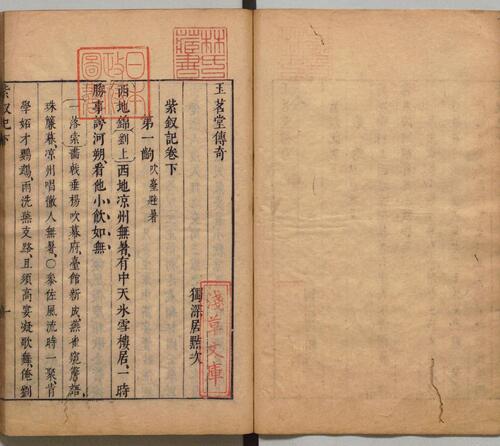 玉茗堂傳奇
獨深居點次
紫釵記卷下
第一齣 吹臺避暑
西地錦劉上西地凉州無暑有中天氷雪樓居一時
勝事誇河朔看他小飲如無
一落索畵戟垂楊吹幕府臺館新成燕雀窺簷語
珠簾暮凉州唱徹人無暑○參佐風流時一聚肯
學妬才鸚鵡雨洗燕支路且須高宴凝歌舞俺劉
林氏藏書
日本政府圖書
淺草文庫